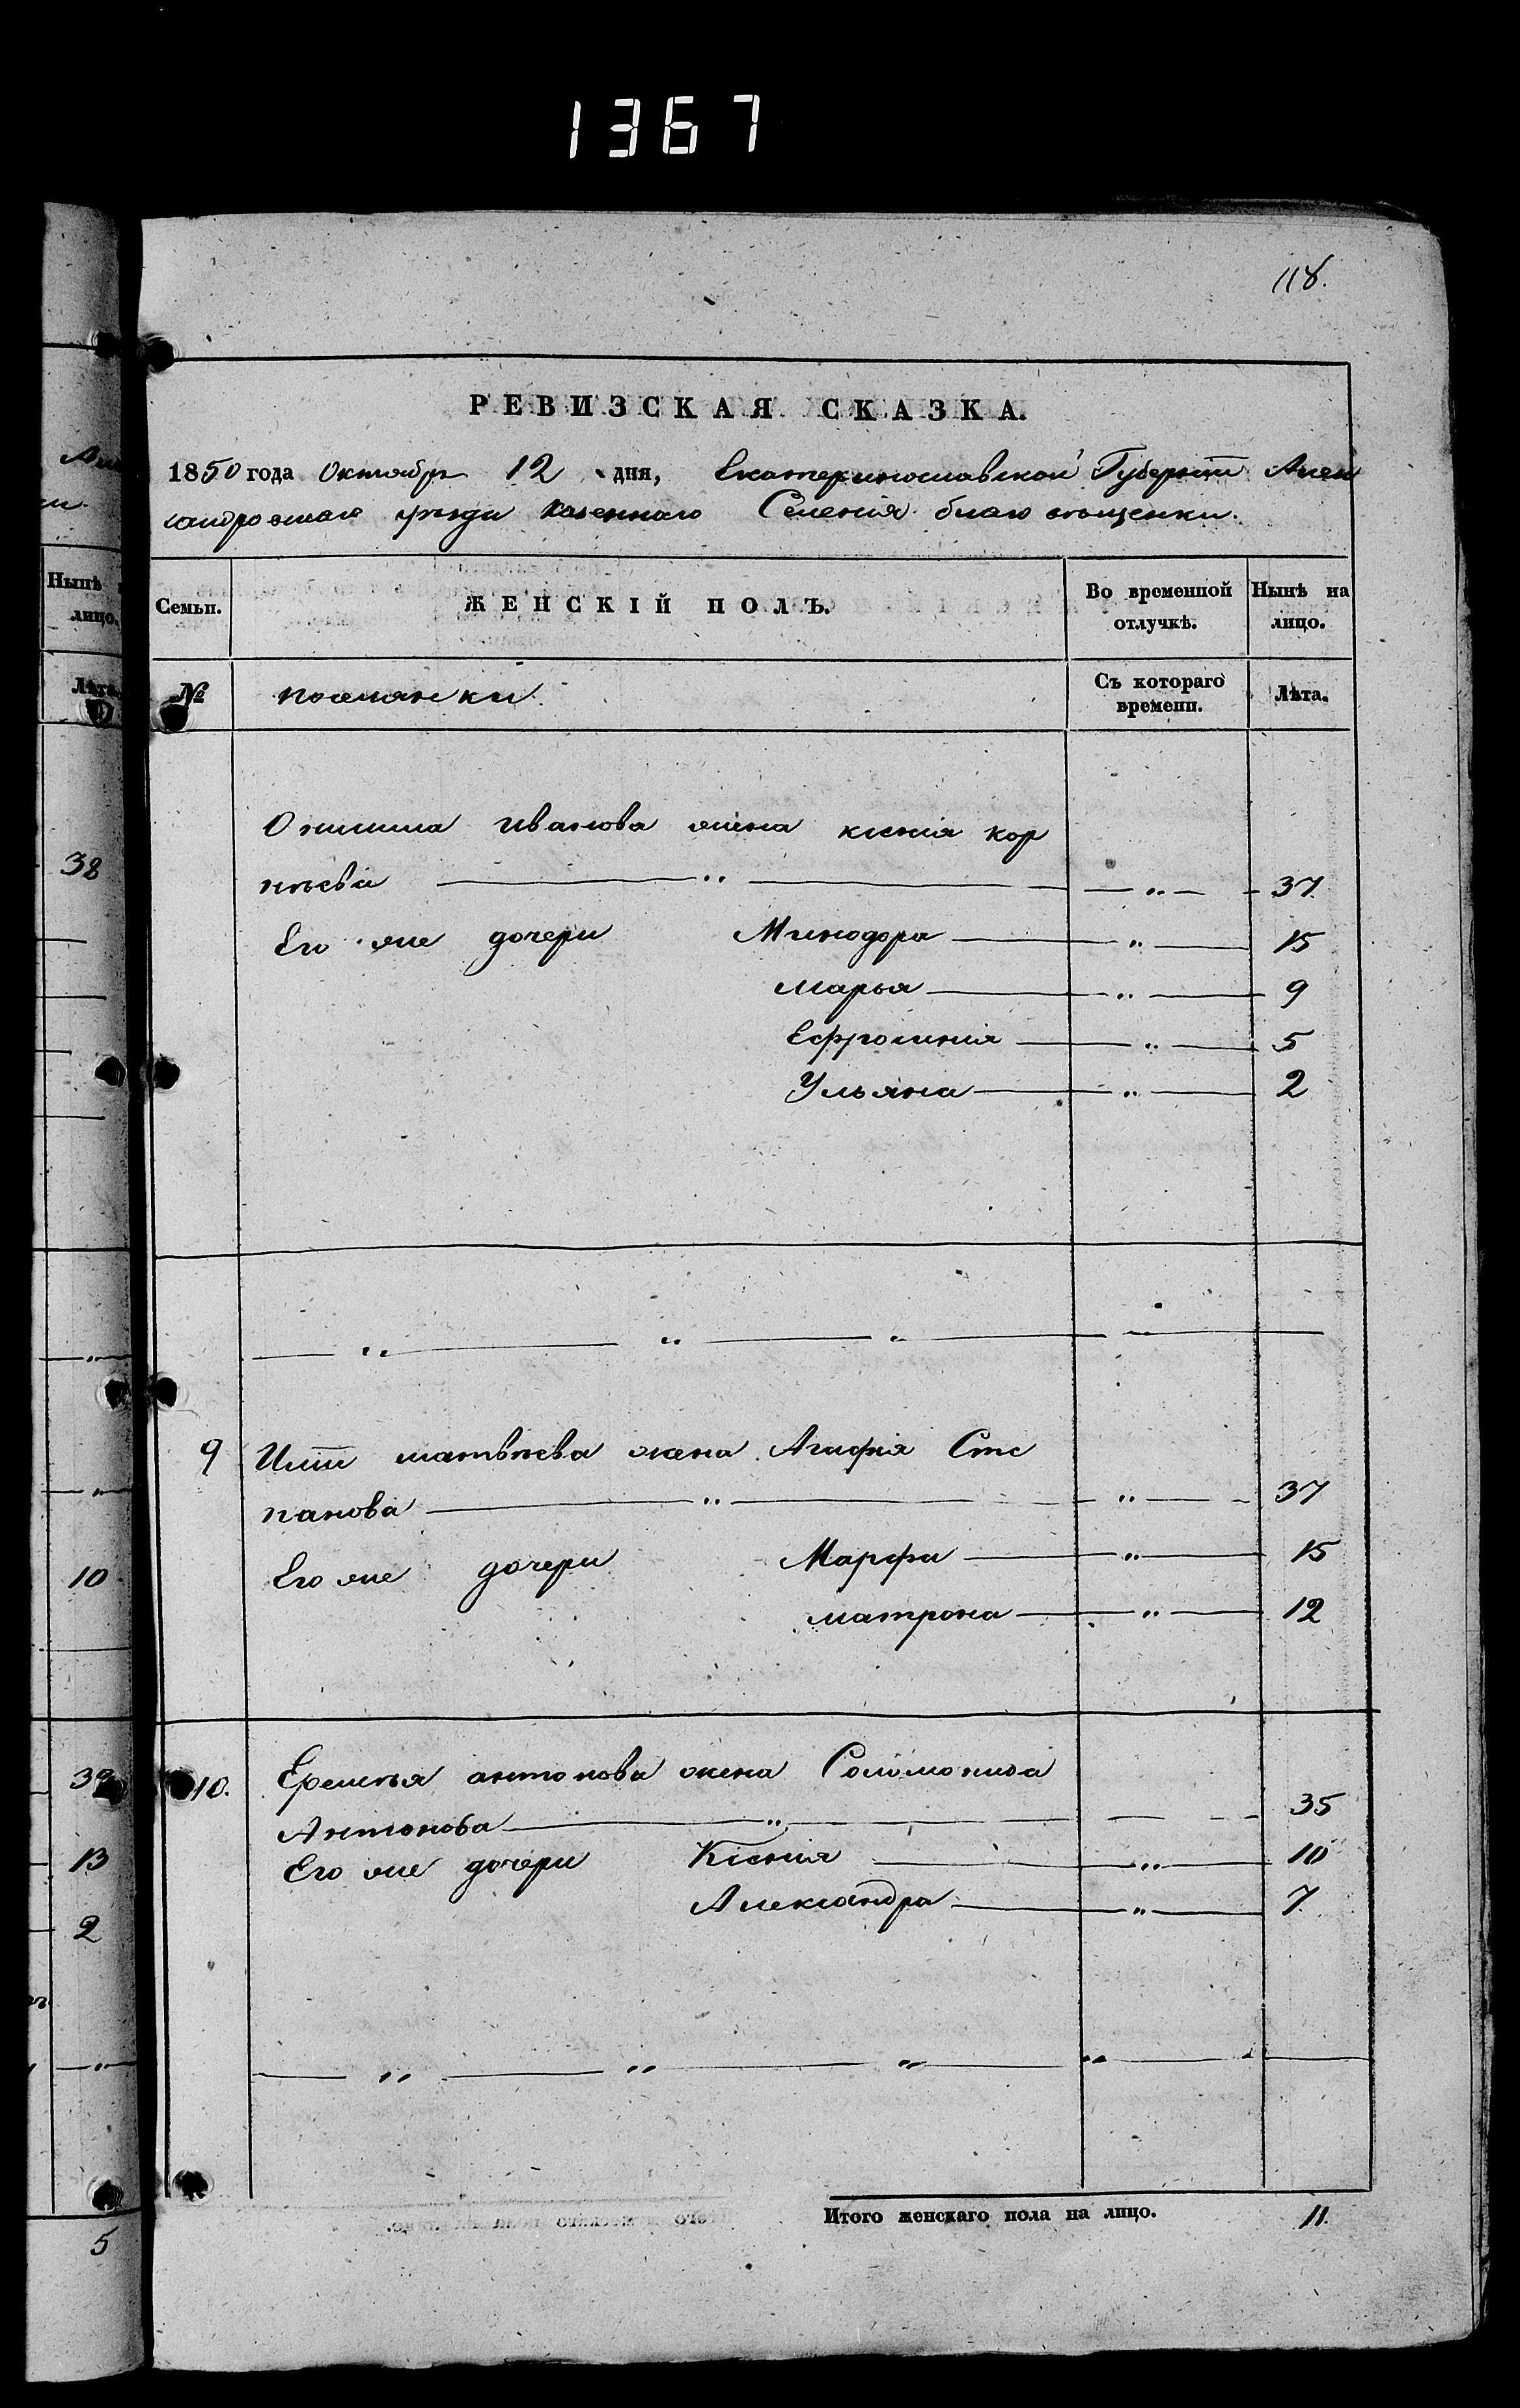 1367
118.
РЕВИЗСКАЯ СКАЗКА.
1850 года Октября 12 дня, Екатеринославской Губернiи Алек
сандровскаго уѣзда казеннаго Селенiя благовѣщенки.
Нынѣ
лицо.
Лѣта.
Семьи.
ЖЕНСКІЙ ПОЛЪ.
Во временной
отлучкѣ.
Нынѣ на
лицо.
№
поселянки.
Съ котораго
времени.
Лѣта.
Онисима иванова жена ксенiя кор
нѣева — „ — — „ — 37.
Его же дочери Минодора — „ — 15
марья — „ — 9
Ефросинiя — „ — 5
Ульяна — „ — 2
38
— „ — „ — „ —
9 матвѣева жена Агафiя Сте
панова — „ — „ — 37
Его же дочери Марфа — „ — 15
матрона — „ — 12
10
10. Еремѣя антонова жена Соломонида
Антонова — „ — 35
Его же дочери Ксенiя — „ — 10
Александра — „ — 7.
39
13
2
— „ — „ — „ — „ —
Итого женскаго пола на лицо. 11.
5